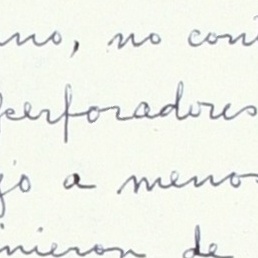 no, no con
perforadores
jo a menos
nieron de